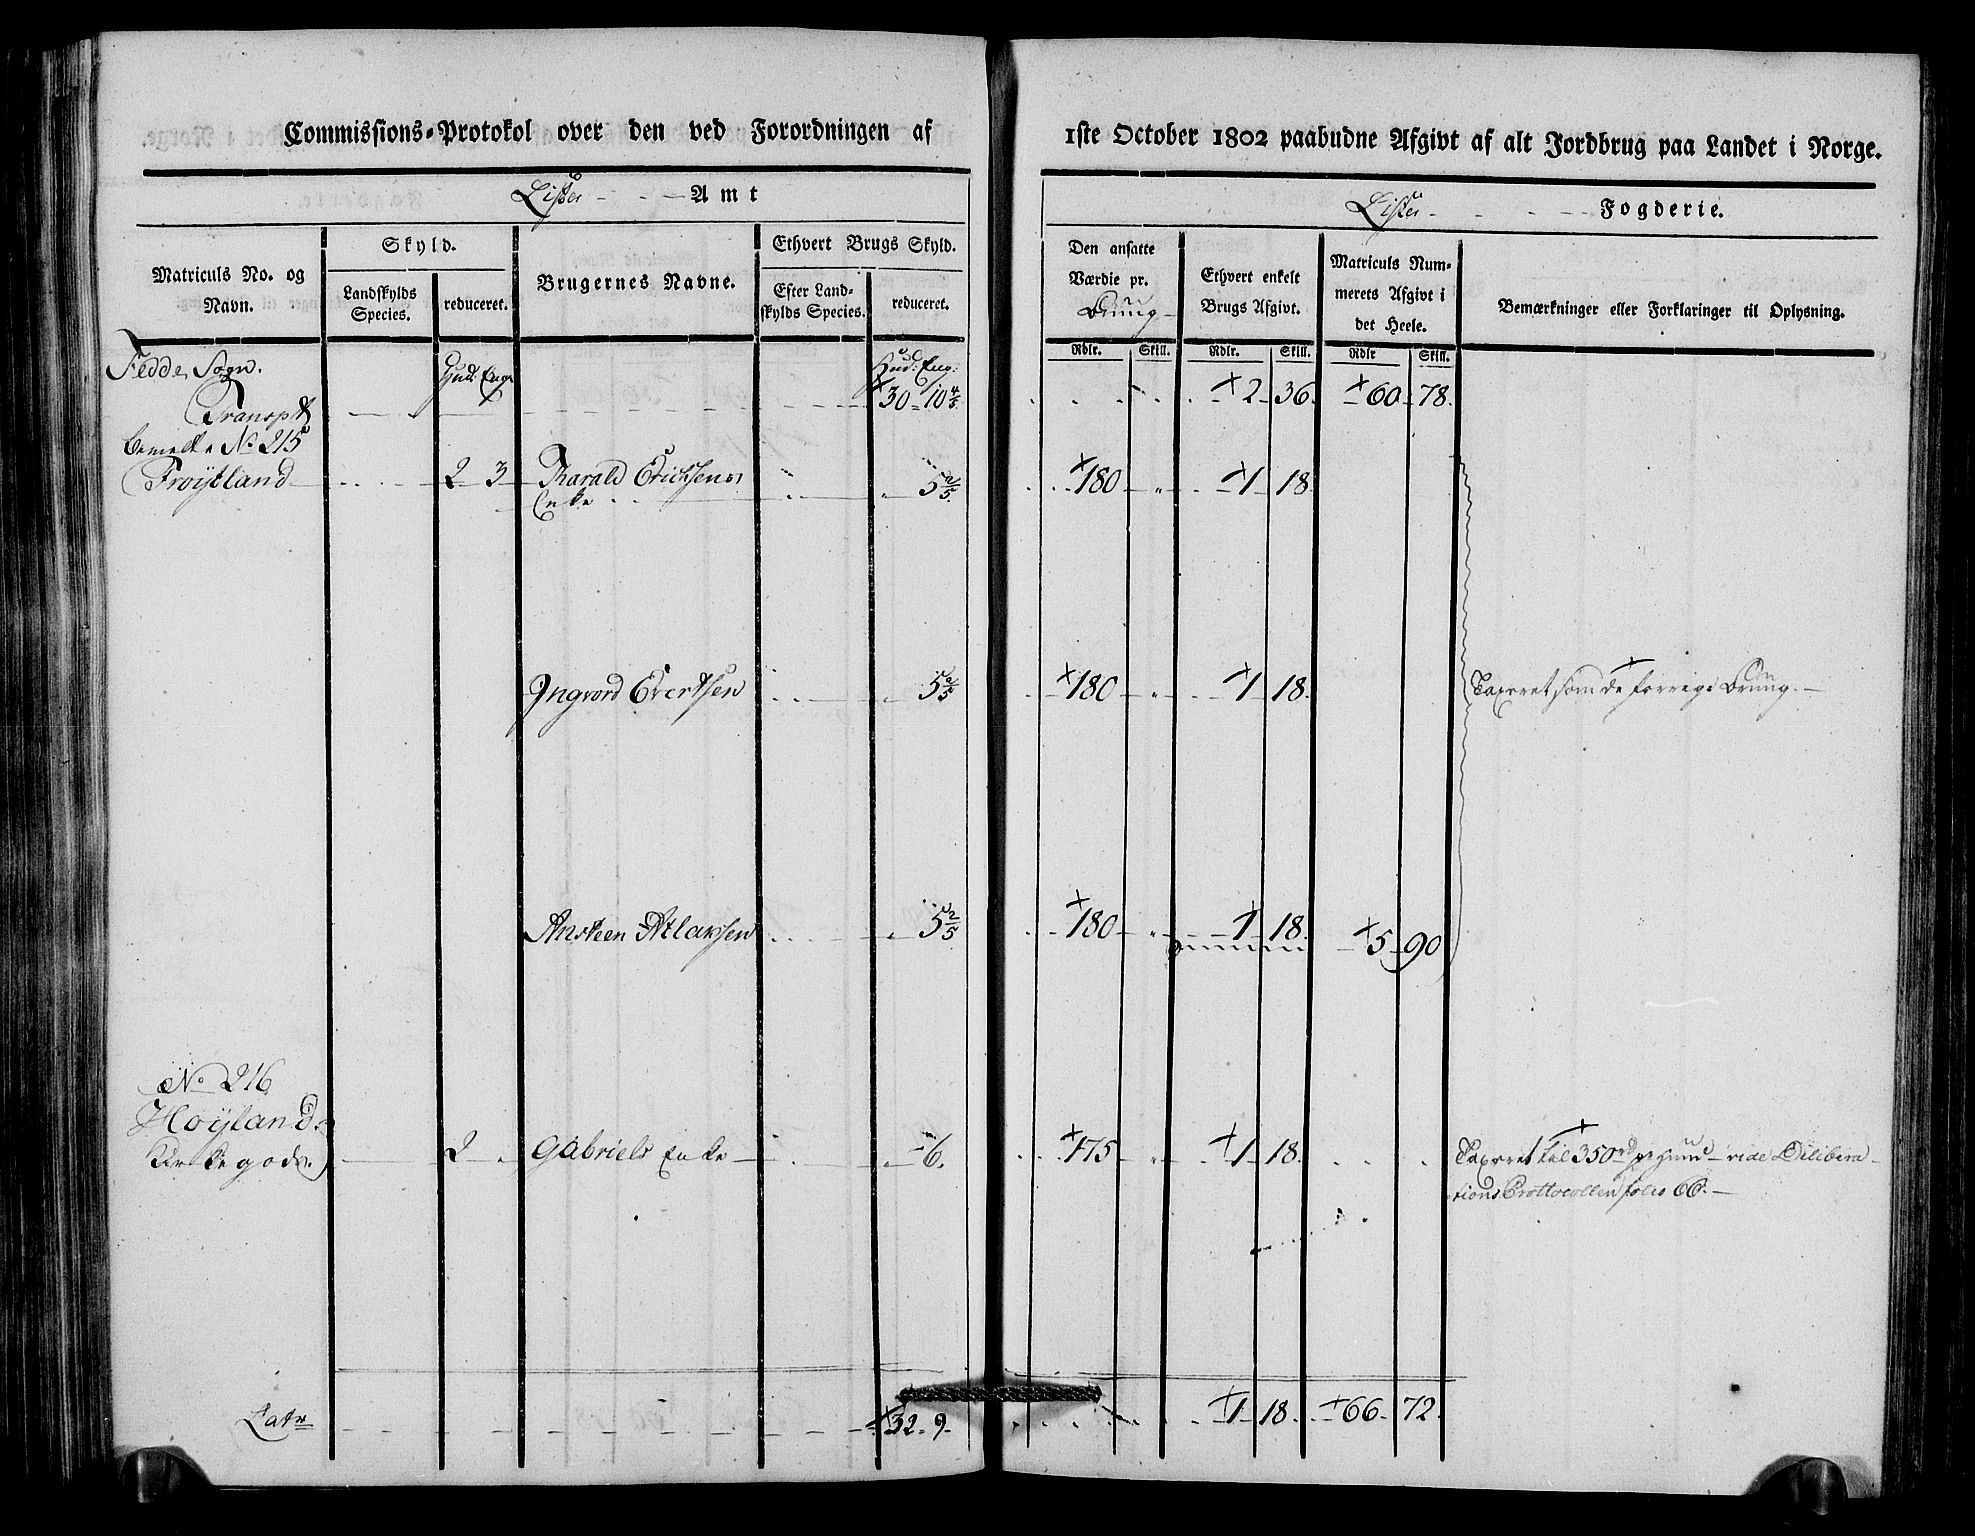 Commissions-Protokol over den ved Forordningen af
Lister - - - Amt
Matriculs No. og Navn.
Skyld.
Landskylds Species.
reduceret.
Brugernes Navne.
Ethvert Brugs Skyld.
Efter Landskylds Species.
reduceret.
Fedde Sogn.
Hud: Eng:
Hud: Eng:
Transpt 30 - 10 4/5
bemelte No 215
Frøÿtland 2 3 Tharald Erichsens 5 2/5
Enke
Ingvord Evertsen 5 2/5
Ansteen Atlaksen 5 2/5
No 216
Høÿland
Kirkegods. 2 " Gabriels Enke 6.
Latr 32 - 9.
1ste October 1802 paabudne Afgivt af alt Jordbrug paa Landet i Norge.
Lister - - - Fogderie.
Den ansatte Værdie pr.
Ethvert enkelt Brugs Afgivt.
Matriculs Nummerets Afgivt i det Heele.
Bemærkninger eller Forklaringer til Oplysning.
Rdlr. Skill. Rdlr. Skill. Rdlr Skill.
2 36. 60 78.
180 " 1 18.
180 " 1 18. Taxeret som de forrige
180 " 1 18. 5 90
175 " 1 18. Taxeret til 350 rd pr Huud - vide Delibera-
tions Prottocollen folio 66. -
1 18. 66 72.